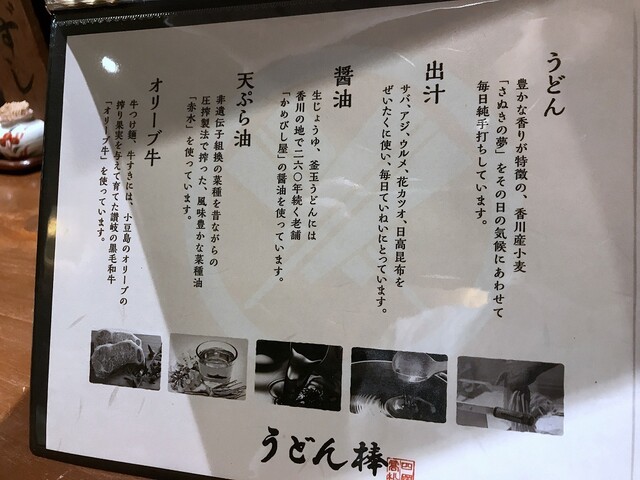 うどん
豊かな香りが特徴の、香川産小麦
「さぬきの夢」をその日の気候にあわせて
毎日純手打ちしています。
出汁
サバ、アジ、ウルメ、花カツオ、日高昆布を
ぜいたくに使い、毎日ていねいにとっています。
醤油
生じょうゆ、釜玉うどんには
香川の地で二六〇年続く老舗
「かめびし屋」の醤油を使っています。
天ぷら油
非遺伝子組換の菜種を昔ながらの
圧搾製法で搾った、風味豊かな菜種油
「赤水」を使っています。
オリーブ牛
牛つけ麺、牛すきには、小豆島のオリーブの
搾り果実を与えて育てた讃岐の黒毛和牛
「オリーブ牛」を使っています。
うどん棒